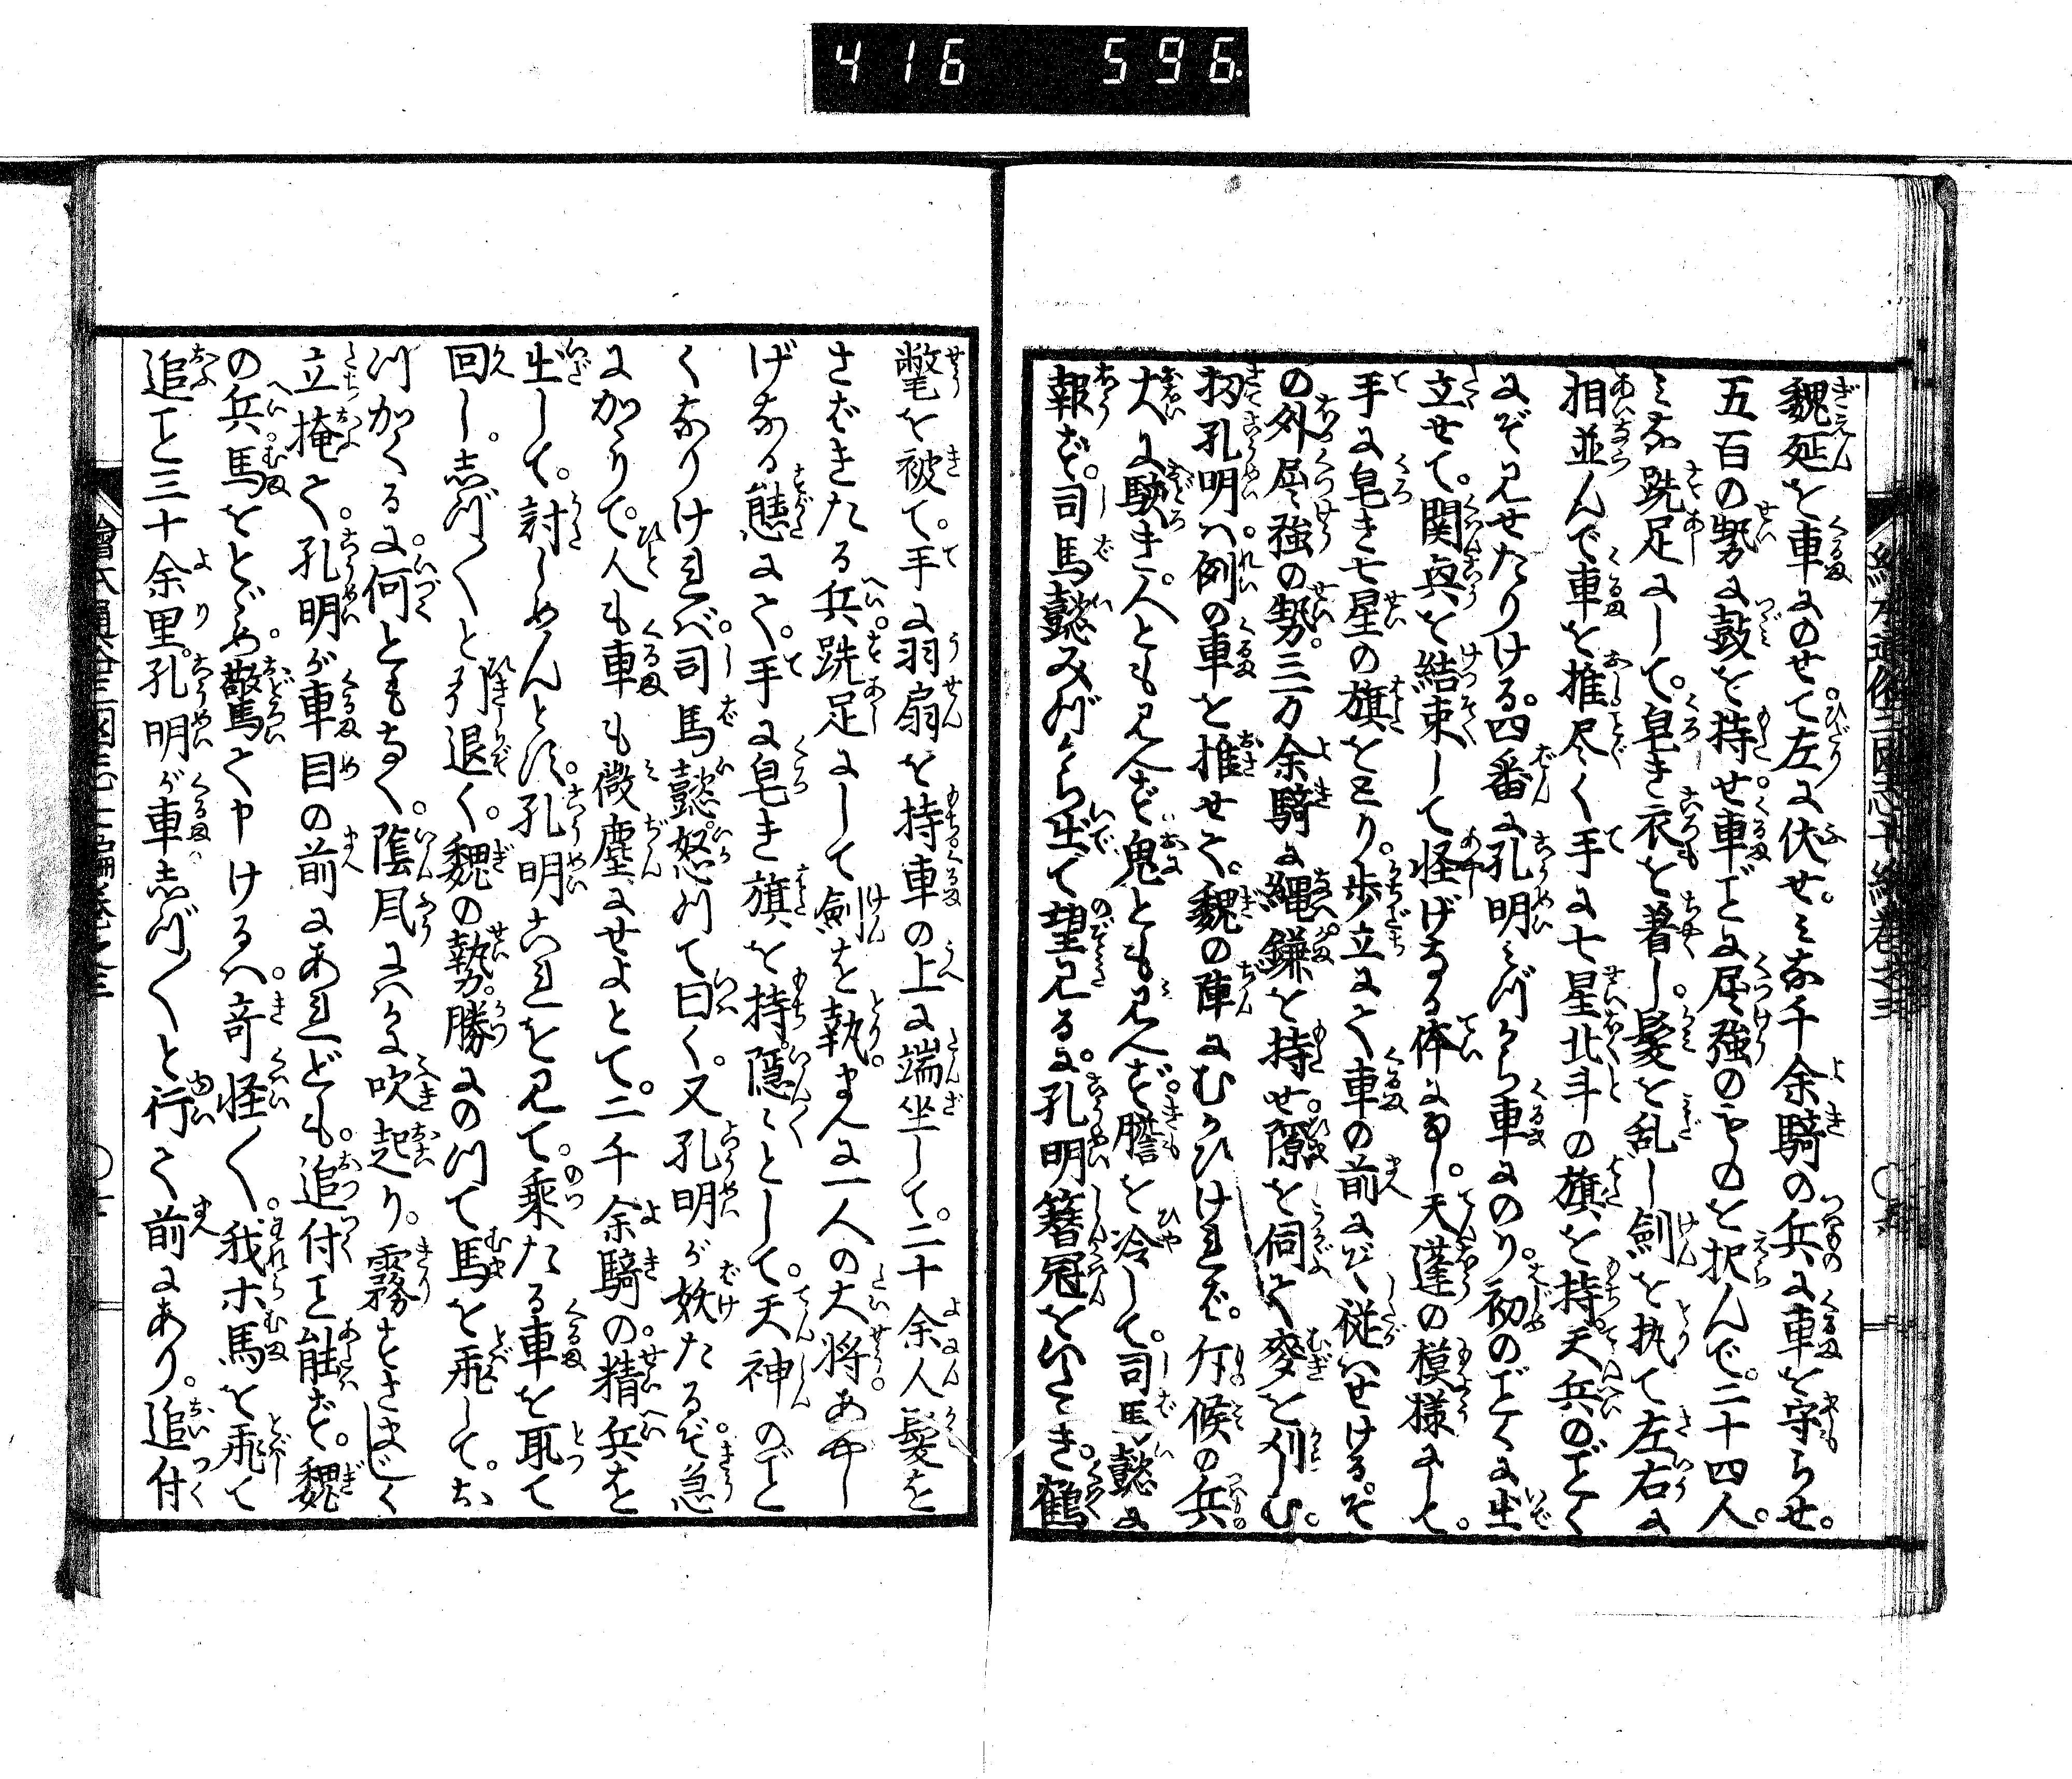 416 596
魏延を車にのせて左に伏せ。みな千余騎の兵に車を守らせ。
五百の勢に鼓を持せ。車ごとに屈強のものを択んで。二十四人。
みな跣足にして。皂き衣を着し。髪を乱し剣を执て左右に
相並んで車を推尽く手に七星北斗の旗を持。天兵のごとく
にぞ見せたりける。四番に孔明みづから車にのり。初のごとくに出
立せて。関興を結束して怪げなる体になし。天蓬の模様にして。
手に皂き七星の旗をとり。歩立にて車の前にぞ従はせける。そ
の外屈強の勢。三万余騎に縄鎌を持せ。隙を伺て麥を刈しむ。
扨孔明ハ。例の車を推せて。魏の陣にむかひけれバ。斥候の兵。
大に駭き。人とも見へず鬼とも見へず。膽を冷して。司馬懿に
報ず。司馬懿みづから出で望見るに。孔明簪冠をいたゞき。鶴
氅を被て。手に羽扇を持車の上に端坐して。二十余人髪を
さばきたる兵。跣足にして剣を執。まへに一人の大将あやし
げなる態にて。手に皂き旗を持。隠々として。天神のごと
くなりけれバ。司馬懿怒つて曰く。又孔明が妖たるぞ。急
にかゝりて。人も車も微塵にせよとて。二千余騎の。精兵を
出して。討しめんとす。孔明これを見て。乗たる車を取て
回し。志づ〱と引退く。魏の勢。勝にのつて馬を飛して。お
つかくるに。何ともなく。陰風にハかに吹起り。霧すさまじく
立掩て。孔明が車目の前にあれども。追付こと能ず。魏
の兵。馬をとゞめ。驚て申けるハ。奇怪〱。我ホ馬を飛て
追こと三十余里。孔明が車志づ〱と行て前にあり。追付